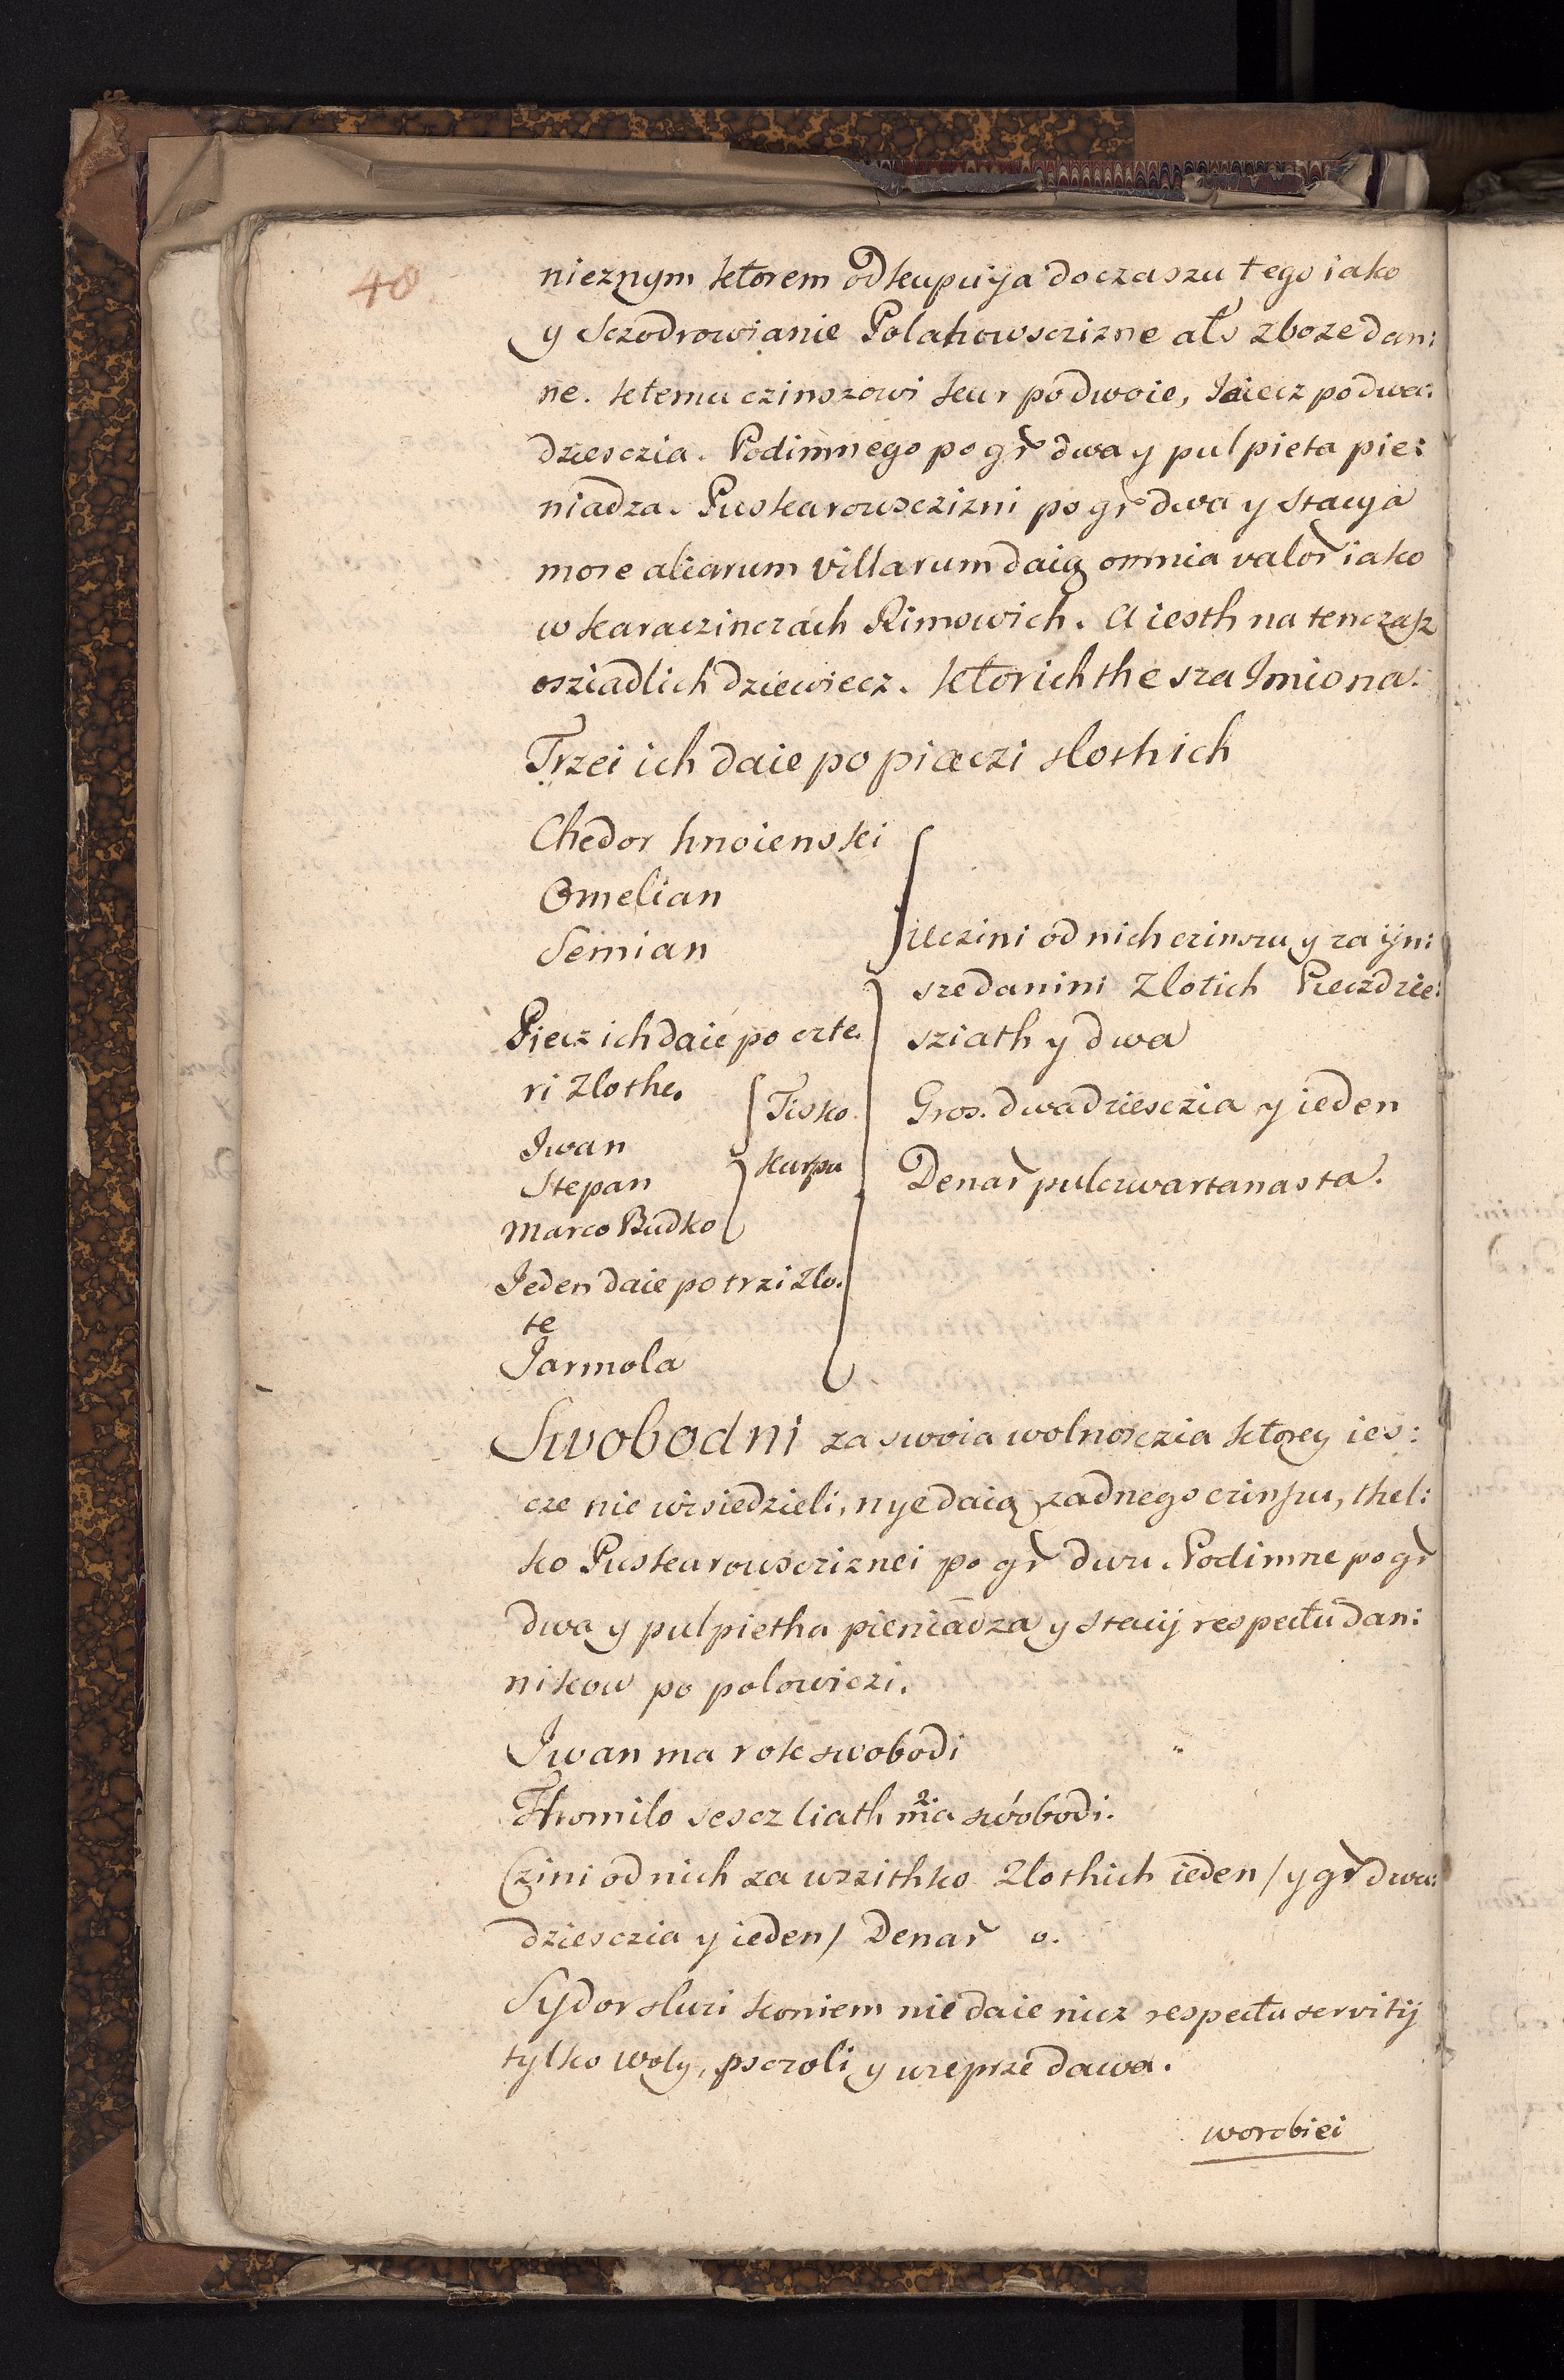 48.
nieznym ktorem odkupuÿa do czaszu tego iako
y Sczodrowianie Polakowsczizne ałs zboze dan:
ne. ktemu czinszowi kur po dwoie, Jaiecz po dwa:
dziesczia. Podimnego po gř dwa y pul pieta pie:
niadza. Puskarowsczizni po gř dwa y stacya
more aliarum villarum daią omnia valoř iako
w karaczinczach Rimowich. A iesth na tenczasz
osziadlich dziewiecz. ktorich the sza Imiona.
Trzei ich daie po piaczi slothich
Chedor hnoienski
Omelian
Semian
Uczini od nich czinszu y za ÿn:
sze danini Zlotich Pieczdzie:
sziath y dwa
Piecz ich daie po czte.
ri Zlothe.
Tisko
Gros. dwadziesczia y ieden
Iwan
karpu
Stepan
Denař pulczwartanasta.
Marco Budko
Ieden daie po trzi Zlo.
te
Jarmola
Swobodni za swoia wolnosczia ktorey ies:
cze nie wisiedzieli, nye daią zadnego czinszu, thel:
ko Puskarowscziznei po gř dwu. Podimne po gř
dwa y pul pietha pieniądza y stacij respectu dan:
nikow po polowiczi.
Iwan ma rok swobodi
Thromilo sescz liath ma swobodi.
Czini od nich za wszithko Zlothich ieden / y gř dwa:
dziesczia y ieden / Denař o.
Sydor sluzi koniem nie daie nicz respectu servitij
tylko woly, psczoli y wieprze dawa.
worobiei